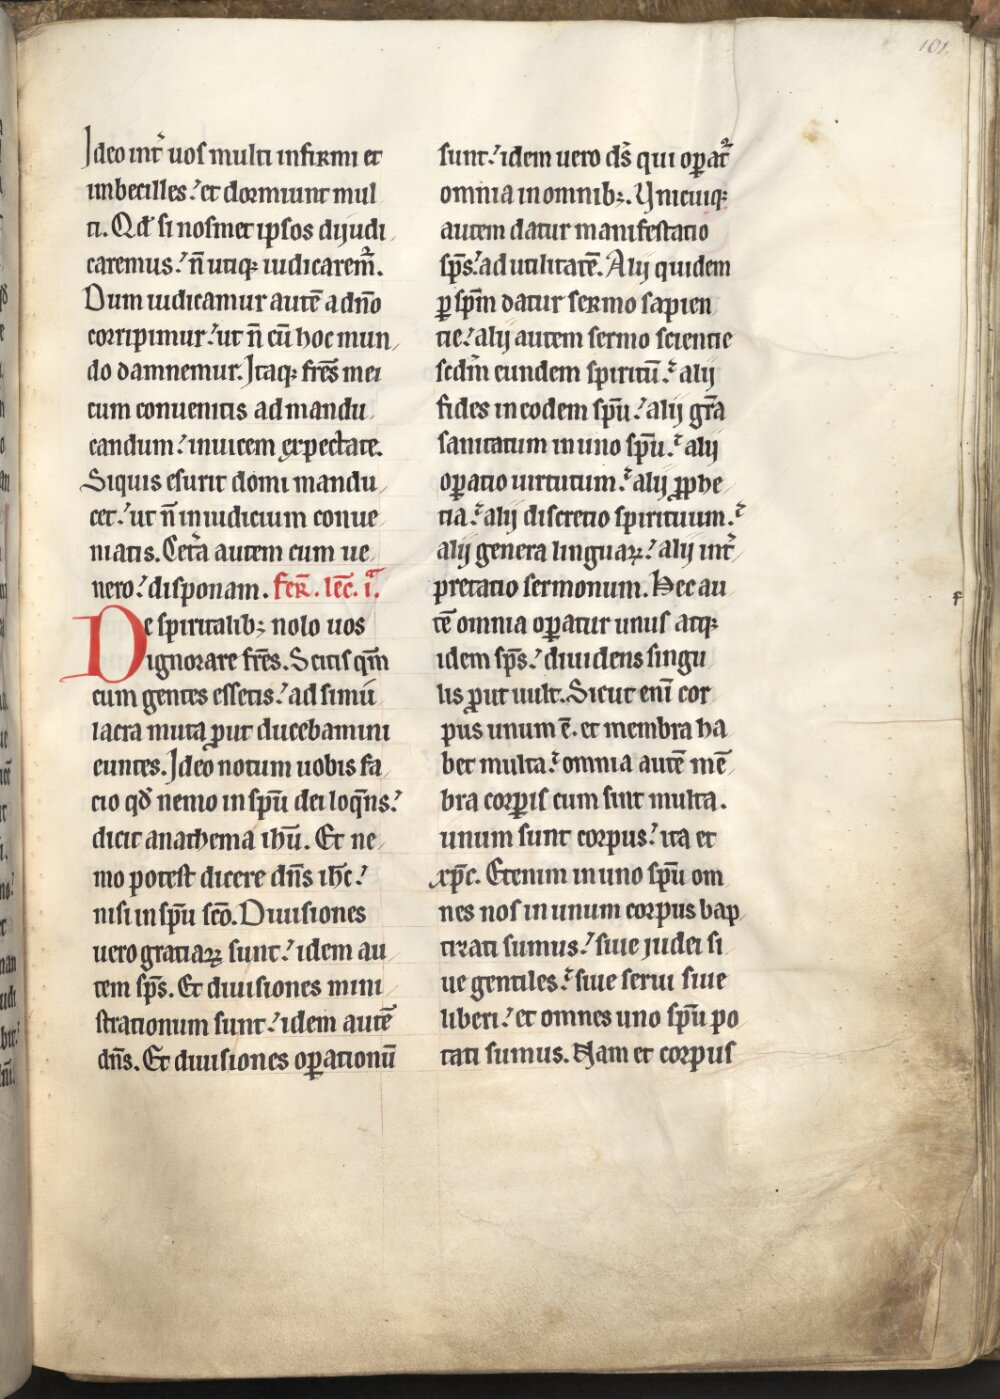 101.
Ideo int̾ uos multi infirmi et
imbecilles. et dormiunt mul
ti. Qd̾ si nosmet ipsos dijudi
caremus. n̄ utiq; iudicarem̄.
Dum iudicamur autē a dn̄o
corripimur. ut n̄ cū hoc mun
do damnemur. Itaq; fr̄es mei
cum conuenitis ad mandu
candum. inuicem expectate.
Siquis esurit domi mandu
cet. ut n̄ in iudicium conue
niatis. Cet̾a autem cum ue
nero. disponam. fer̄. lec̄. i.ͣ
De spiritalib; nolo uos
ignorare fr̄es. Scitis qm̄
cum gentes essetis. ad simu
lacra muta ꝓut ducebamini
euntes. Ideo notum uobis fa
cio qd̾ nemo in sp̄u dei loq̄ns.
dicit anathema ihū. Et ne
mo potest dicere dn̄s ihc̄.
nisi in sp̄u sc̄o. Diuisiones
uero gratiaꝝ sunt. idem au
tem sp̄s. Et diuisiones mini
strationum sunt. idem autē
dn̄s. Et diuisiones oꝑationū
sunt. idem uero ds̄ qui oꝑat̾
omnia in omnib;. Vnicuiq;
autem datur manifestatio
sp̄s. ad utilitatē. Alij quidem
ꝑ sp̄m datur sermo sapien
tie. alij autem sermo scientie
scd̄m eundem spiritū. alij
fides in eodem sp̄u. alij gr̄a
sanitatum in uno sp̄u. alij
oꝑatio uirtutum. alij ꝓphe
tia. alij discretio spirituum.
alij genera linguaꝝ. alij int̾
pretatio sermonum. Hec au
tē omnia oꝑatur unus atq;
idem sp̄s. diuidens singu
lis ꝓut uult. Sicut eni̅ cor
pus unum ē. et membra ha
bet multa. omnia autē mē
bra corꝑis cum sint multa.
unum sunt corpus. ita et
xp̄c. Etenim in uno sp̄u om
nes nos in unum corpus bap
tizati sumus. siue judei si
ue gentiles. siue serui siue
liberi. et omnes uno sp̄u po
tati sumus. Nam et corpus